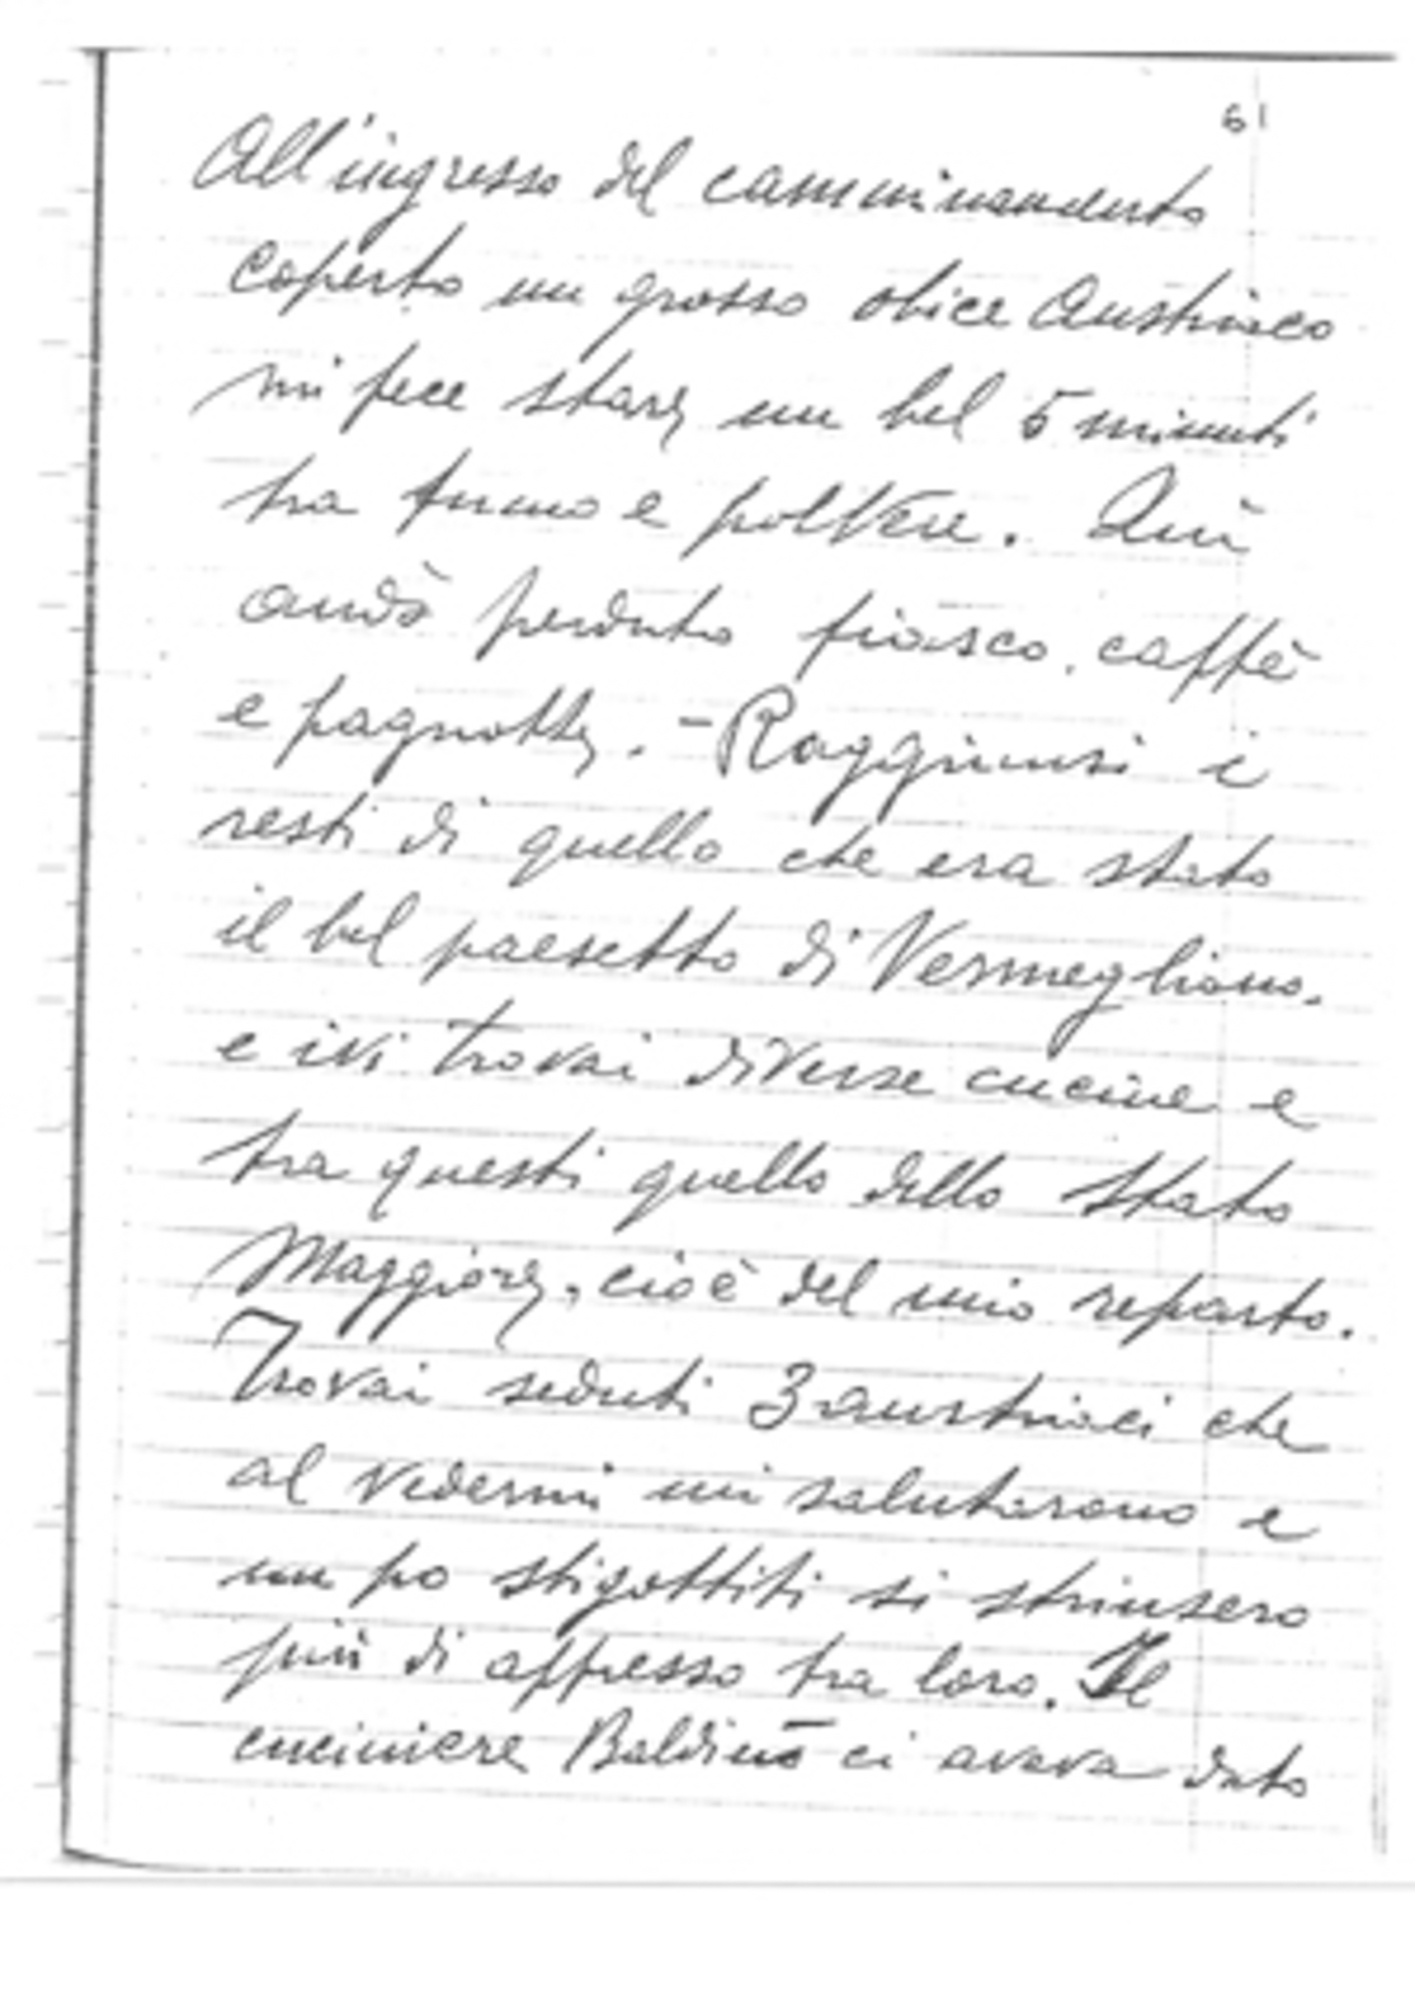 61
All'ingresso del camminamento
Coperto un grosso obice Austriaco
mi fece stare un bel 5 minuti
tra fumo e polvere. Quì
andò perduto fiasco, caffè
e pagnotte. - Raggiunsi i
resti di quello che era stato
il bel paesetto di Vermegliano.
e ivi trovai diverse cucine e
tra questi quello dello Stato
Maggiore, cioè del mio reparto.
Trovai seduti 3 austriaci che
al vedermi mi salutarono e
un po stigottiti si strinsero
più di appresso tra loro. Il
cuciniere Baldino ci aveva dato